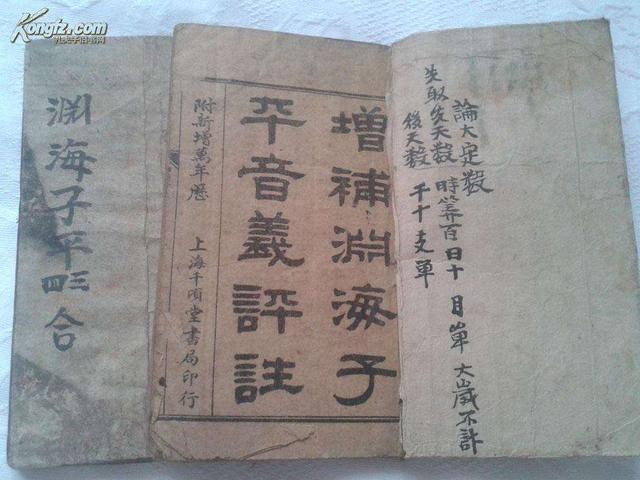 Kongfz.com
孔夫子旧书网
論大定数
先取先天数 時算百日十月单 大歲不計
後天数 千十支單
增補淵海子
平音義評註
附新增萬年歷
上海千頃堂書局印行
渊海子平四三合